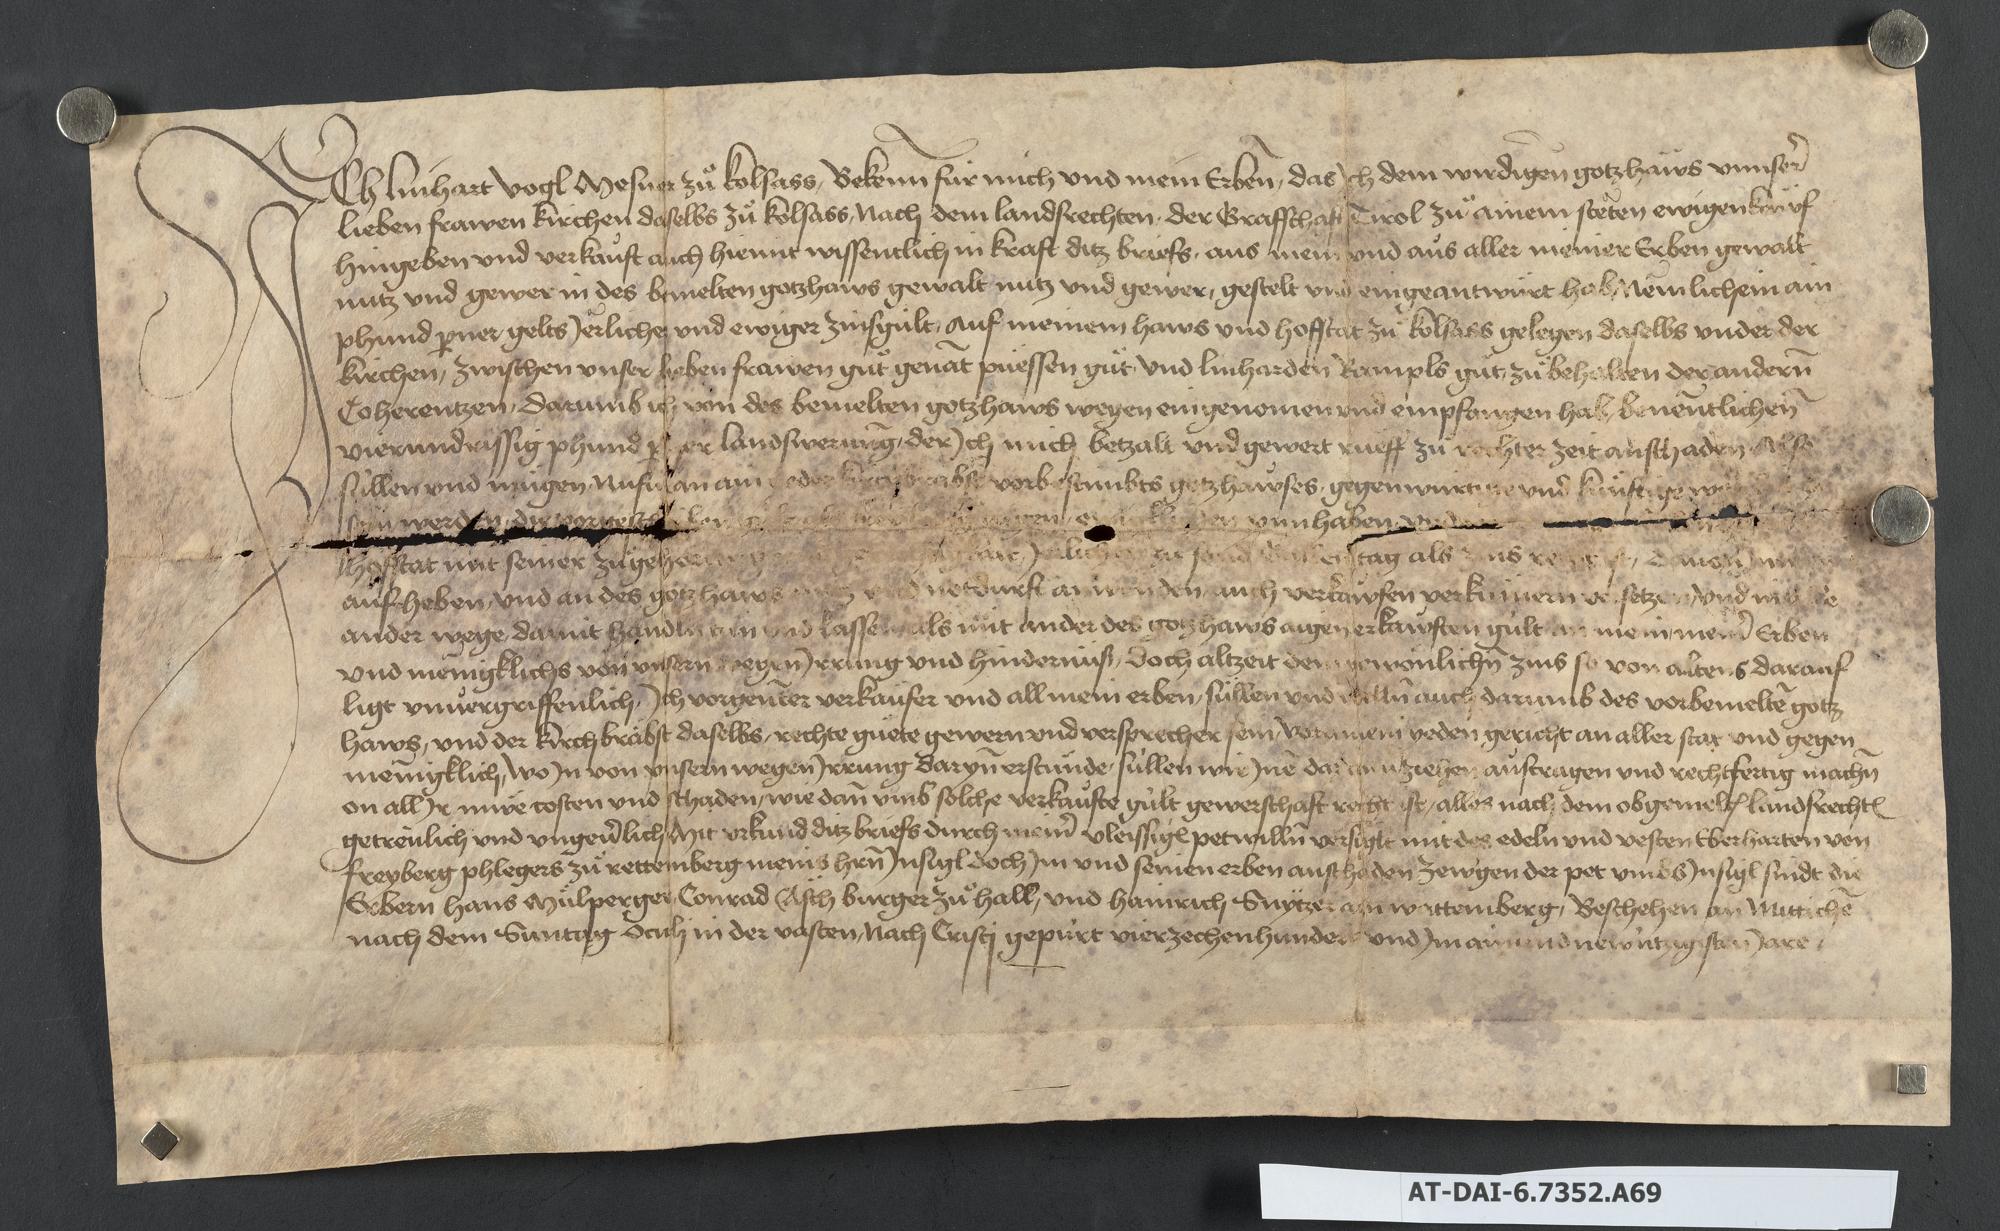 Ich linhart vogl Mesner zů kolsass, Bekenn für mich vnd mein Erben, das Ich dem wirdigen gotzhaws vnnser
lieben frawen kirchen daselbs zů kolsass, Nach dem landsrechten der Graffschaft Tirol zů ainem stëten ewigen kauf
hingeben vnd verkauft auch hiemit wissentlich in kraft ditz briefs, aus mein vnd aus aller meiner Erben gewalt
nutz vnd gewer in des bemelten gotzhaws gewalt nutz vnd gewer, gestelt vnd eingeantwürt hab, Nemlichein ain
phund perner gelts Jerlicher vnd ewiger zinsgült, Auf meinem haws vnd hofstat zů kolsass gelegen daselbs vnder der
kirchen, zwischen vnser lieben frawen gůt genãt püessen gůt, vnd linharden Rampls gůt, zů behalten der andern̄
Coherentzen, Darumb ich von des bemelten gotzhaws wegen eingenomen vnd empfangen hab, benentlichen̄
vierundrissig phund perner landswerung, der Ich mich betzalt vnd gewert rueff zu rechter zeit an schaden Also
süllen vnd mügen Nu ain yeder kirchbrabst vorbestimbts gotzhawses, gegenwürtige vnd künftige
sein werden, die vorgeschriben haben
hofstat mit seiner zůgehorung Järlichen zu sand tag als zins recht ist, Dauon
aufheben, vnd an des gotzhaws nutz vnd notdurft anwenden, auch verkawfen verkümern versetzen, vnd in
ander wege, damit handln tun vnd lassen als mit ander des gotzhaws aigen erkawften gült an mein meiner Erben
vnd menigklichs von vnsern wegen Irrung vnd hindernüss, Doch altzeit dem gewonlichn̄ zins so von alters darauf
ligt vnuergriffenlich, Ich vorgenter verkaufer vnd all mein erben, süllen vnd welln̄ auch darumb des vorbemeltē gotz
haws, vnd der kirchbräbst daselbs, rechte güete gewern vnd versprecher sein, Vor ainem yeden gericht an aller stat vnd gegen
menigklich, wo In von vnsern wegen Irrung daryn̄ erstünde, süllen wir Inē darumb ziehen austragen vnd rechtfertig machn̄
on all Ir müe costen vnd schaden, wie dan̄ vmb solche verkaufte gült gewerschaft recht ist, alles nach dem obgemelt landsrecht
getreulich vnd vngeuerlich Mit vrkund ditz briefs durch meiner vleissigē petwilln̄ versiglt mit des edeln vnd vesten Eberharten von
freyberg phlegers zů rettemberg meins hrn̄ Insigl doch Im vnd seinen erben an schaden zewgen der pet vmbs Insigl sindt die
Erbern hans Mülperger, Conrad Asch burger zů hall, vnd hainrich Snytzer am wattemberg, Beschehen an Mittichē
nach dem Suntag Oculi in der vasten, Nach Cristi gepürt vierzechenhundert vnd Im ainundnewntzigisten Jare
AT-DAI-6.7352.A69